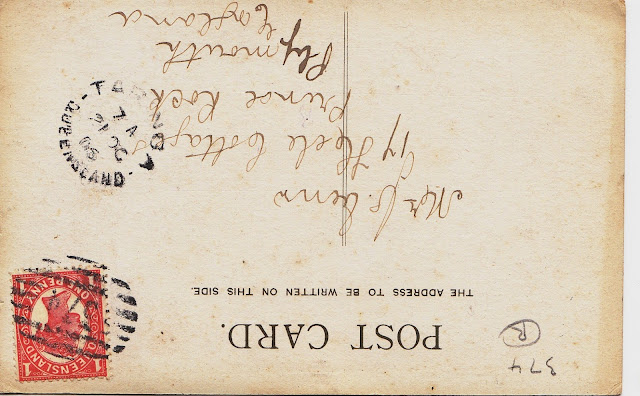 POST CARD.
THE ADDRESS TO BE WRITTEN ON THIS SIDE.
QUEENSLAND
ONE PENNY
1 1
374
R
Mrs
17 Cottages
Prince Rock
Plymouth
England
QUEENSLAND